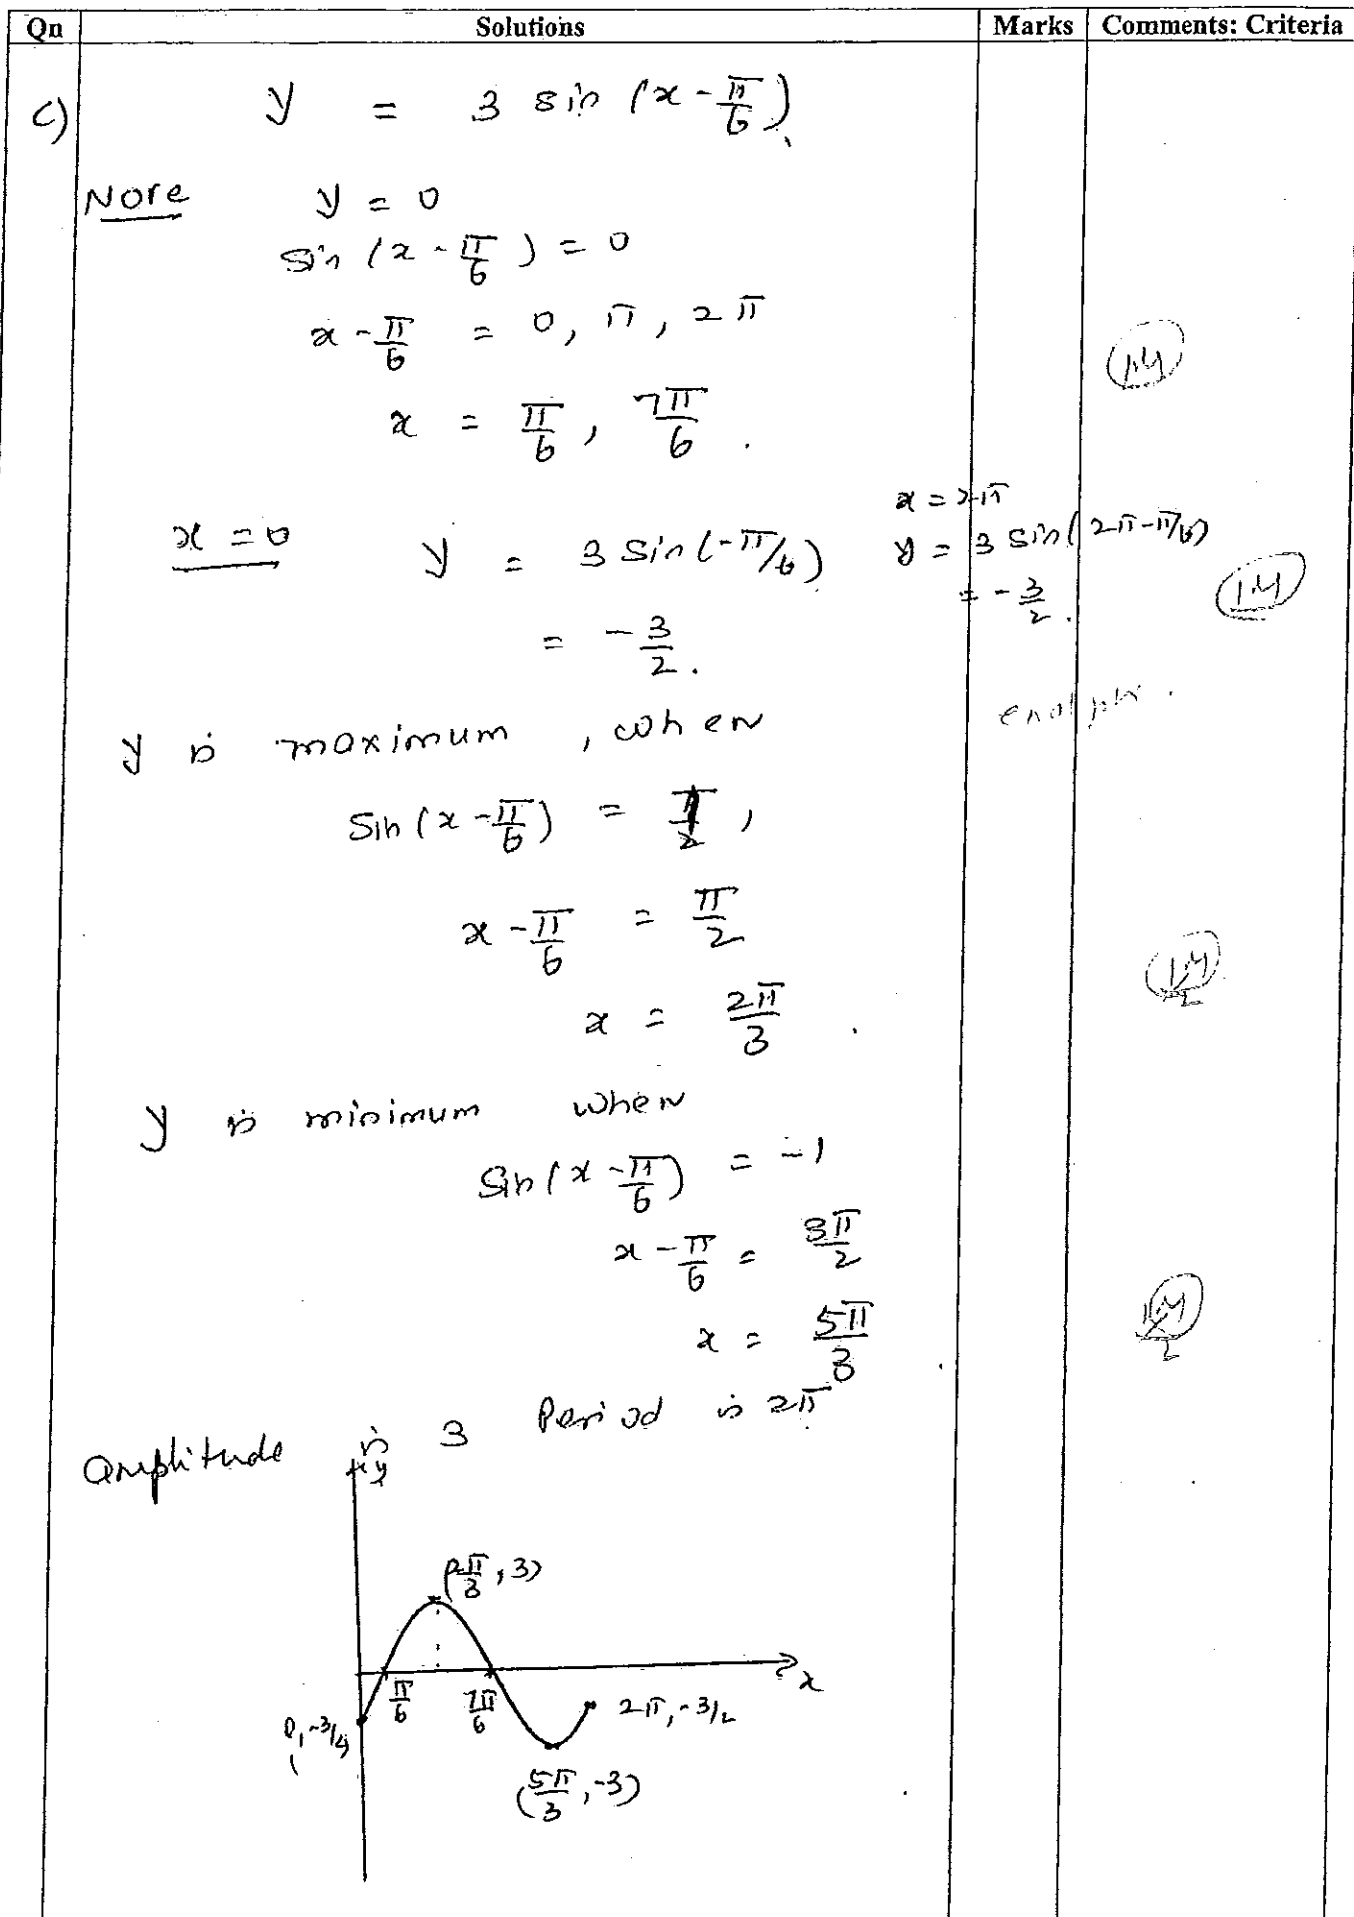 Qn Solutions Marks Comments: Criteria
c) y = 3 sin (x - π/6)
Note y = 0
sin (x - π/6) = 0
x - π/6 = 0, π, 2π
1M
x = π/6, 7π/6.
x = 0 y = 3 sin(-π/6)
= -3/2.
x = 2π
y = 3 sin(2π-π/6)
= -3/2.
1M
y is maximum, when
sin(x - π/6) = 1,
x - π/2 = π/2
x = 2π/3.
1M/2
y is minimum when
sin(x - π/6) = -1
x - π/6 = 3π/2
x = 5π/3.
1M/2
Amplitude is 3 Period is 2π
y
(2π/3, 3)
x
π/6 7π/6
2π, -3/2
(5π/3, -3)